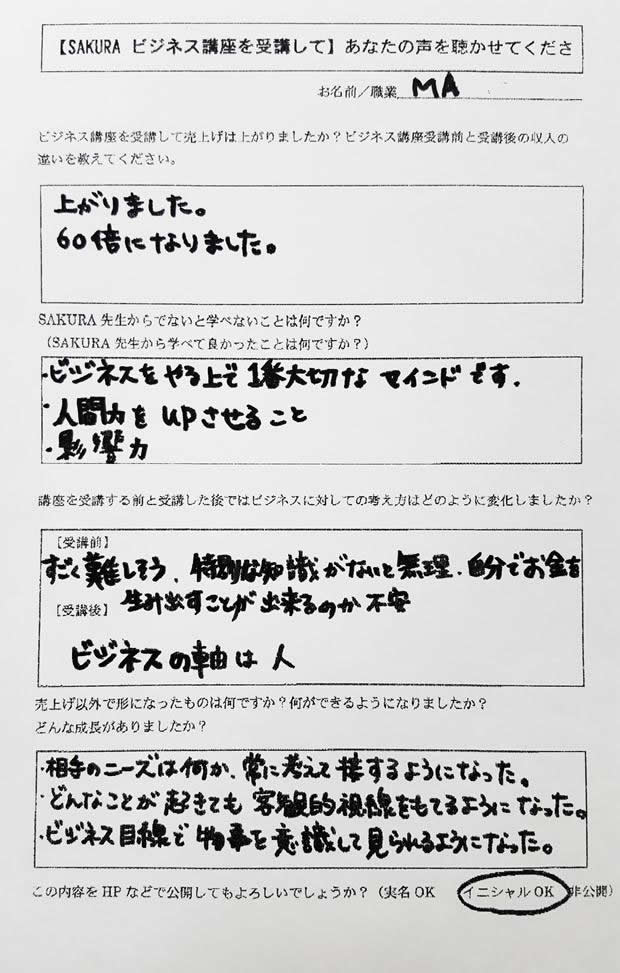 【SAKURA ビジネス講座を受講して】あなたの声を聴かせてくださ
お名前／職業 MA
ビジネス講座を受講して売上げは上がりましたか？ビジネス講座受講前と受講後の収入の
違いを教えてください。
上がりました。
60倍になりました。
SAKURA 先生からでないと学べないことは何ですか？
（SAKURA 先生から学べて良かったことは何ですか？）
・ビジネスをやる上で1番大切なマインドです.
・人間力をupさせること
・影響力
講座を受講する前と受講した後ではビジネスに対しての考え方はどのように変化しましたか？
【受講前】
すごく難しそう、特別な知識がないと無理、自分でお金を
生み出すことが出来るのか不安
【受講後】
ビジネスの軸は人
売上げ以外で形になったものは何ですか？何ができるようになりましたか？
どんな成長がありましたか？
・相手のニーズは何か、常に考えて接するようになった。
・どんなことが起きても客観的視線をもてるようになった。
・ビジネス目線で物事を意識して見られるようになった。
この内容を HP などで公開してもよろしいでしょうか？（実名 OK イニシャル OK 非公開）